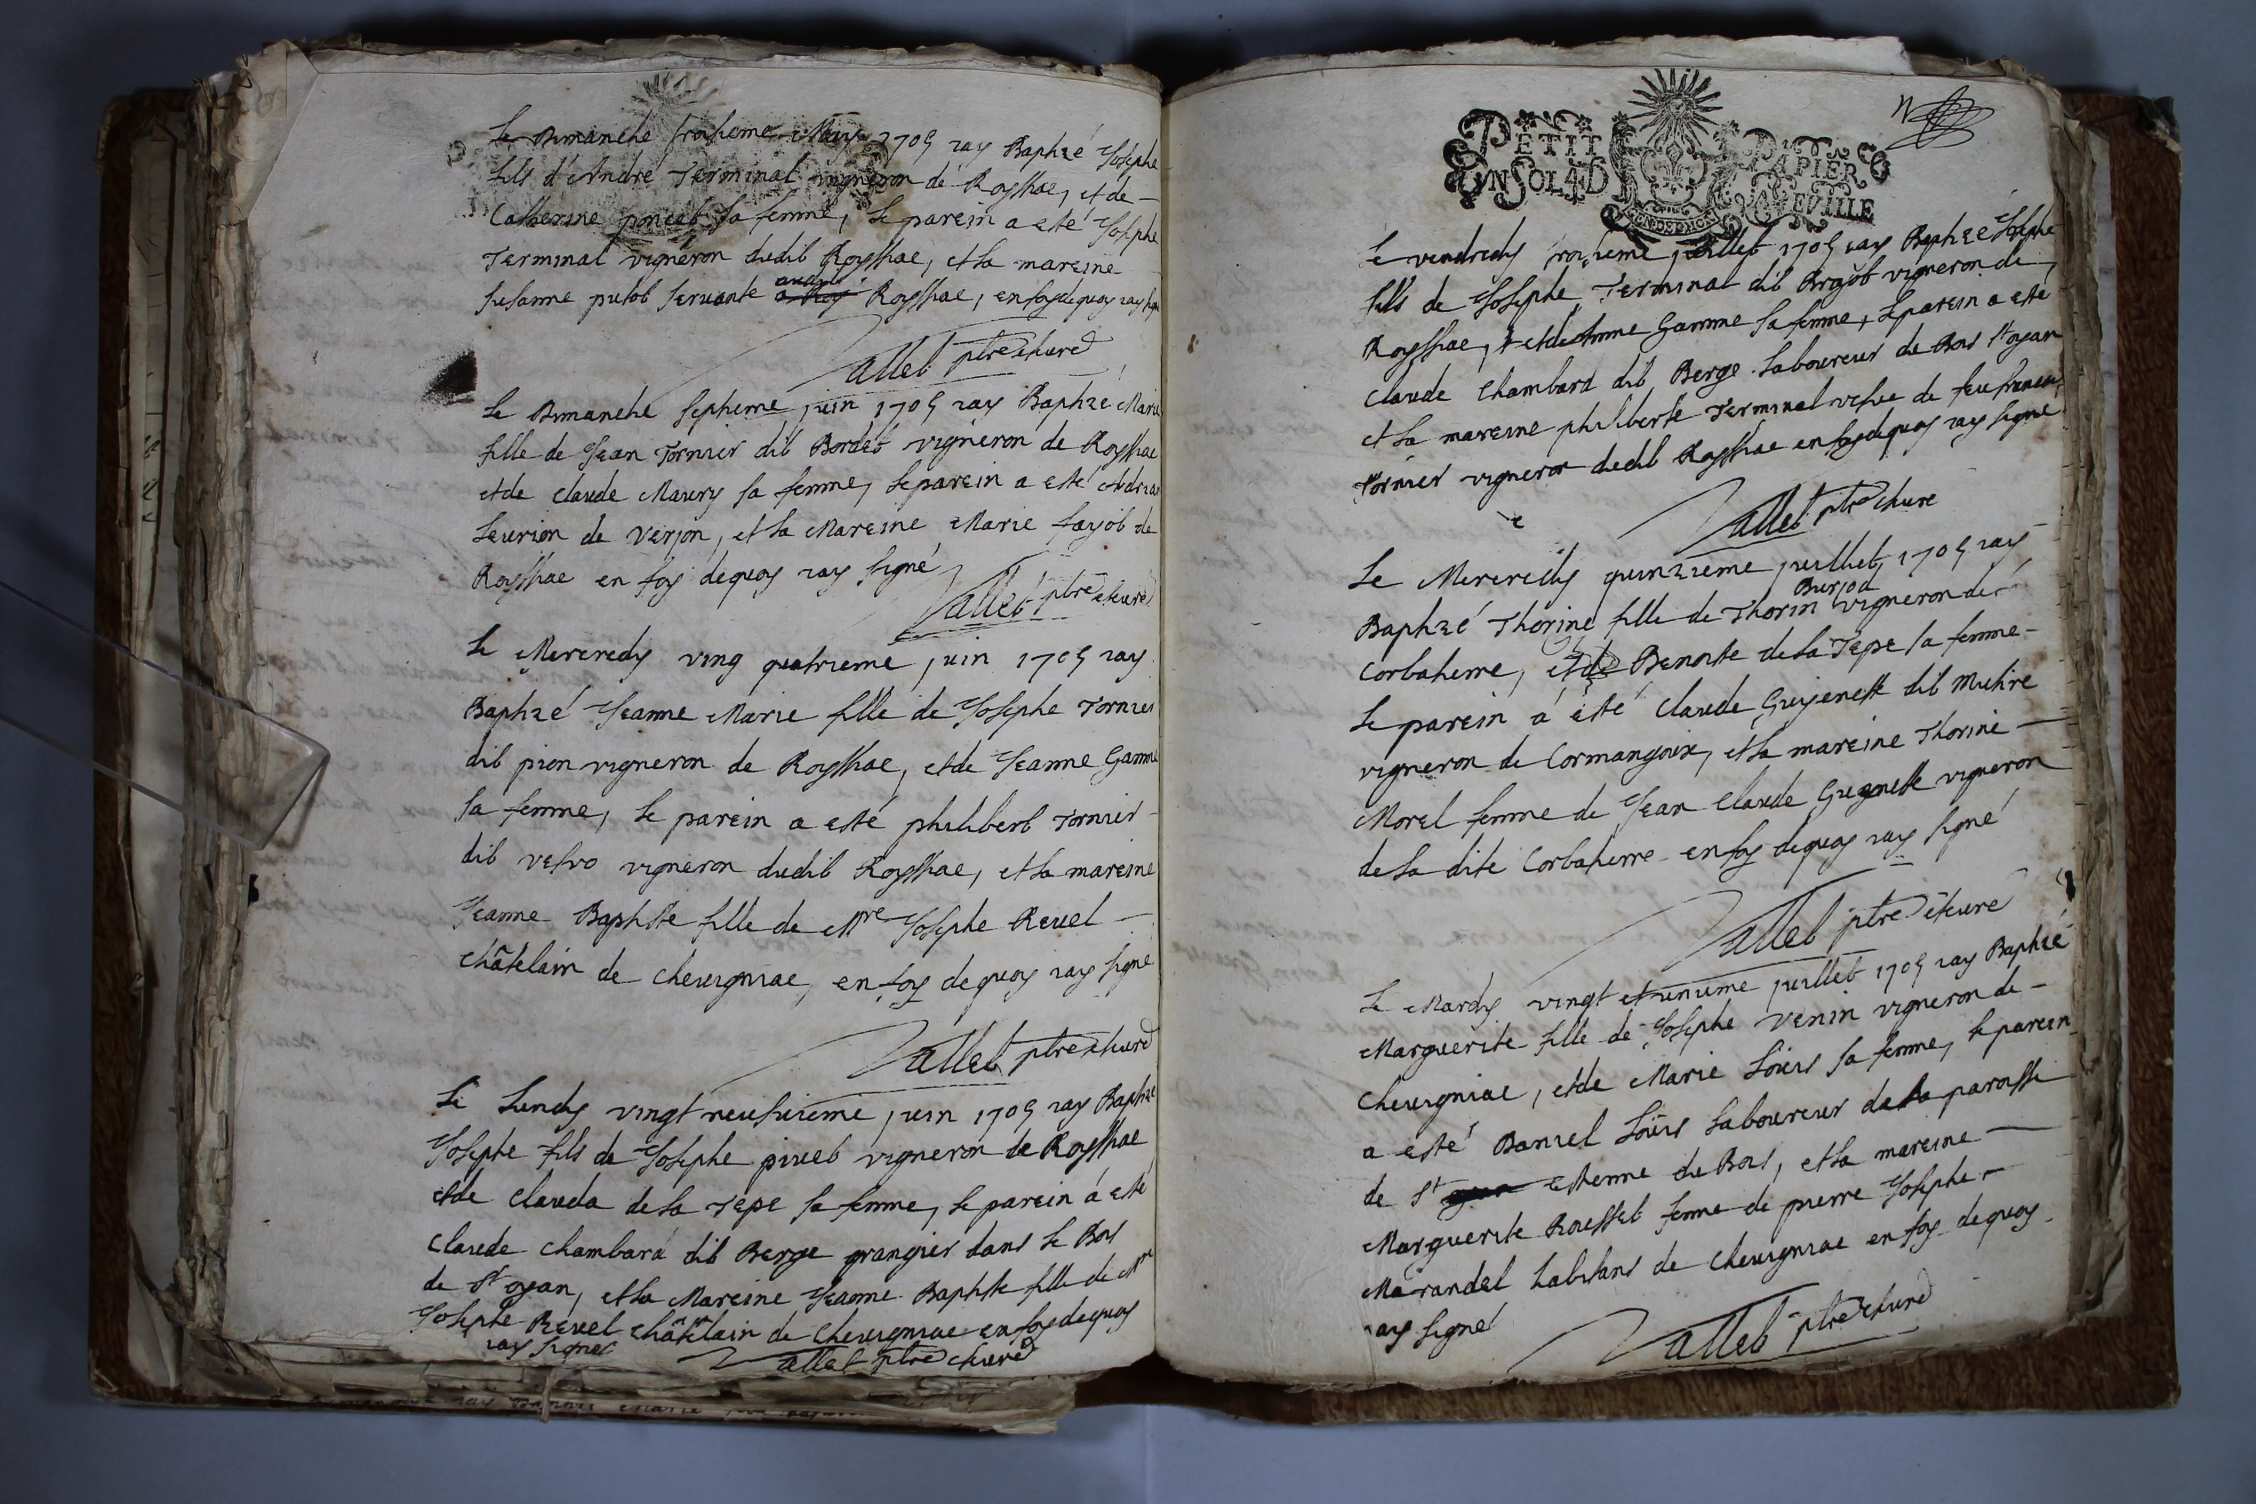 Le Dimanche troisieme May 1705 iay Baptzé Josephe
fils d'Andre Terminal vigneron de Royssiac, et de
Catherine poncet sa femme, Le parein a esté Josephe
Terminal vigneron dudit Royssiac, et la mareine
susanne putot servante audit Royssiac, en foy de quoy iay signé
Vallet ptre et curé
Le Dimanche septieme juin 1705 iay Baptzé Marie
fille de Jean Tornier dit Bordet vigneron de Royssiac
et de claude Maury sa femme, Le parein a esté
de Verjon, et la Mareine Marie fayot de
Royssiac en foy de quoy iay signé
Vallet ptre et curé
Le Mercredy ving quatrieme juin 1705 iay
Baptzé Jeanne Marie fille de Josephe Tornier
dit pion vigneron de Royssiac, et de Jeanne Gamme
sa femme, Le parein a esté philibert Tornier
dit vesvo vigneron dudit Royssiac, et la mareine
Jeanne Baptiste fille de Mre Josephe Revel
châtelain de chevigniac, en foy de quoy iay signé
Vallet ptre et curé
Le Lundy vingt neufvieme juin 1705 iay Baptzé
Josephe fils de Josephe pivet vigneron de Royssiac
et de clauda de la Tepe sa femme, Le parein á esté
claude chambard dit Berge grangier dans le Bois
de St oyan, et la Mareine Jeanne Baptiste fille de Mre
Josephe Revel châtelain de chevigniac en foy de quoy
iay signé
Vallet ptre et curé
PETIT PAPIER
UN SOL 4 D LA FEUILLE
Le vendredy troisieme juillet 1705 iay Baptzé Josephe
fils de Josephe Terminal dit Argot vigneron de
Royssiac, et de Anne Gamme sa femme, Le parein a esté
Claude Chambard dit Berge Laboureur du Bois St oyan
et la mareine philiberte Terminal vesve de feu francois
Tornier vigneron dudit Royssiac en foy de quoy iay signé
Vallet ptre et curé
Le Mercredy quinzieme juillet 1705 iay
Burjod
Baptzé Thorine fille de Thorin vigneron de
Corbaterre, et de Benoite de la Tepe sa femme
Le parein á esté Claude Guyenette dit
vigneron de Cormangoux, et la mareine Thorine
Morel femme de Jean Claude Guyenette vigneron
de la dite Corbaterre en foy de quoy iay signé
Vallet ptre et curé
Le Mardy vingt et unieme juillet 1705 iay Baptzé
Marguerite fille de Josephe Venin vigneron de
Chevigniac, et de Marie Loüis sa femme, le parein
a esté Daniel Loüis Laboureur de la paroisse
de St estienne du Bois, et la mareine
Marguerite Rousset femme de pierre Josephe
Marandel habitans de Chevigniac en foy de quoy
iay signé
Vallet ptre et curé